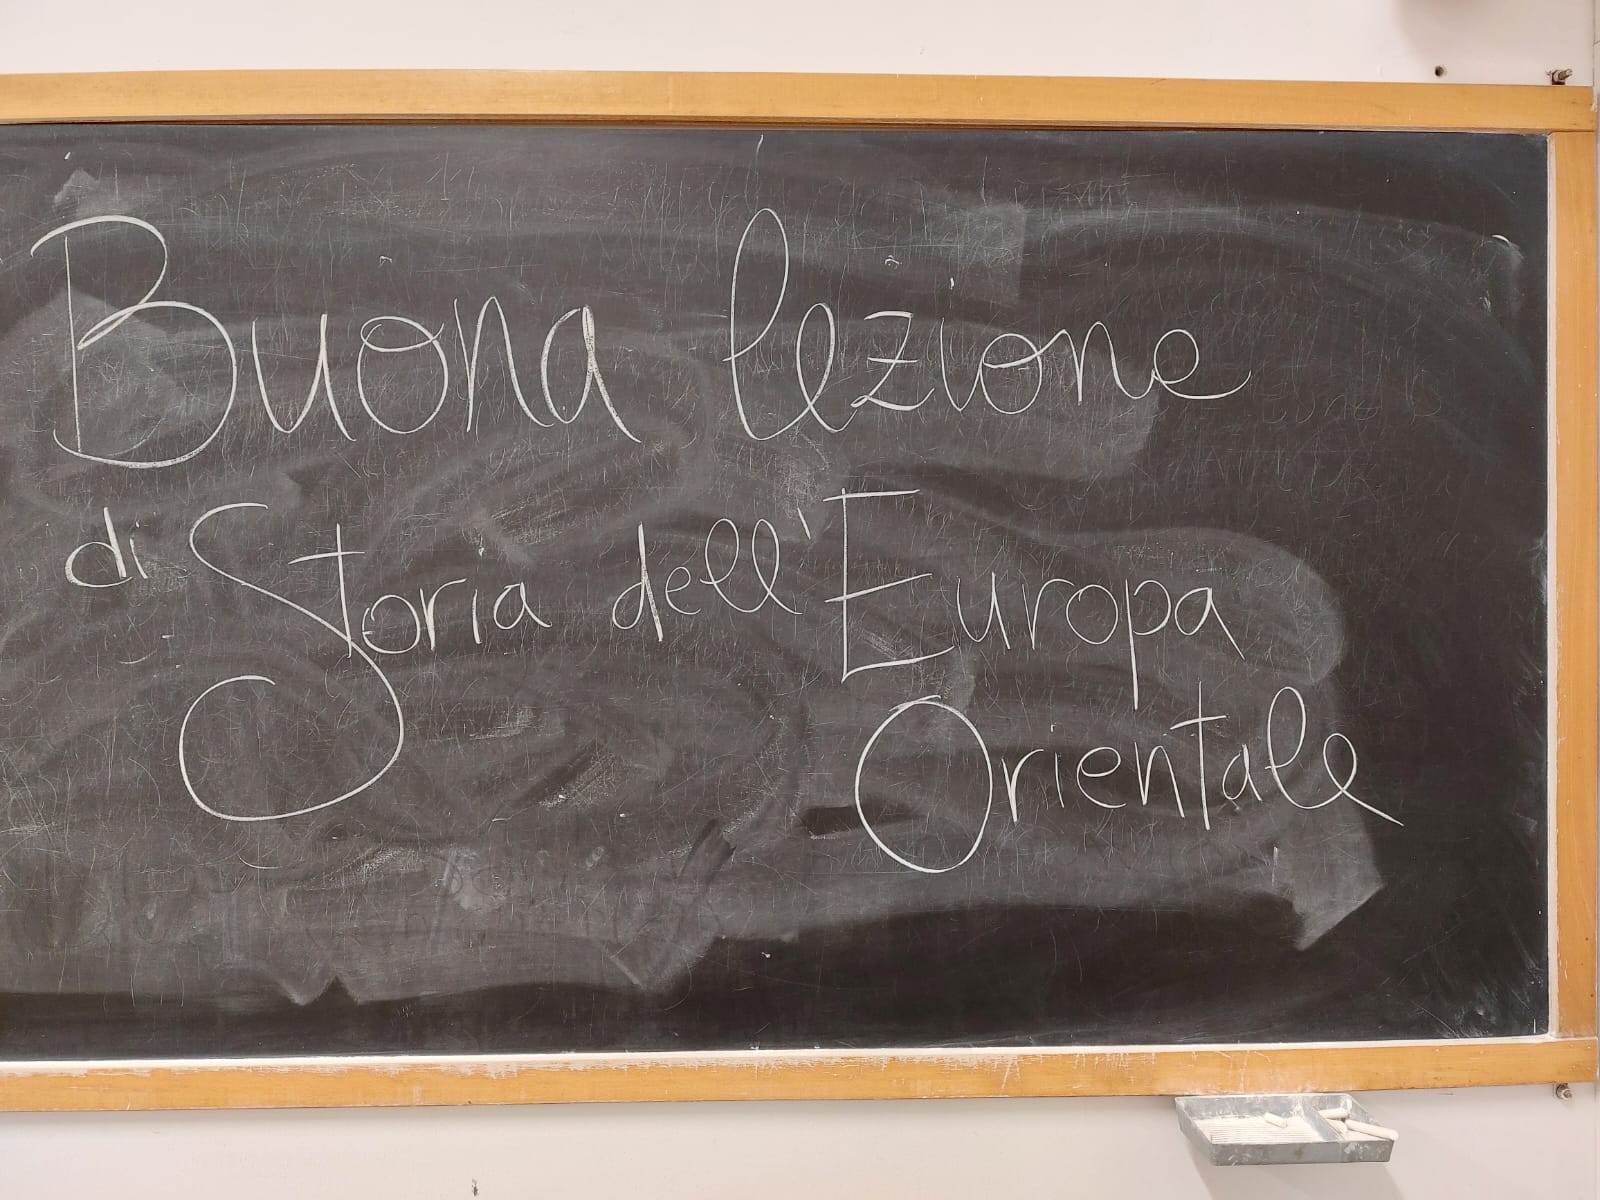 Buona lezione
di Storia dell'Europa
Orientale